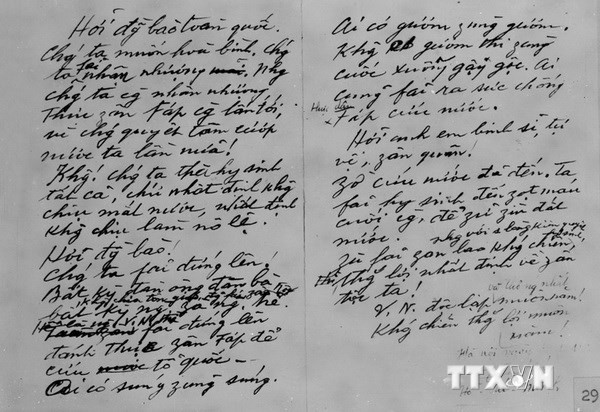 Hỡi đg bào toàn quốc.
Chg ta muốn hoà bình, chg
ta fải nhân nhượng. Nhg
chg ta cg nhân nhượng
thực zân Fáp cg lấn tới,
vì chg quyết tâm cướp
nước ta lần nữa!
Khg! chg ta thà hy sinh
tất cả, chứ nhất định khg
chịu mất nước, nhất định
khg chịu làm nô lệ.
Hỡi đg bào!
Chg ta fải đứng lên!
Bất kỳ đàn ông đàn bà
bất kỳ ng zà ng trẻ.
Hễ là ng V.N. thì
fải đứng lên
đánh thực zân Fáp để
cứu tổ quốc –
Ai có súng zùng súng.
Ai có gươm zùng gươm.
Khg gươm thì zùng
cuốc xuổng gậy gộc. Ai
cũng fải ra sức chống
thực zân
Fáp cứu nước.
Hỡi anh em binh sĩ, tự
vệ, zân quân!
Zờ cứu nước đã đến. Ta
fải hy sinh đến zọt máu
cuối cg, để zữ zìn đất
nước.
Zù fải zan lao kháng chiến,
nhg với 1 lòng kiên quyết
hi sinh,
thắg lợi nhất định về zân
tộc ta!
V.N. độc lập
muôn năm!
Kháng chiến thắg lợi muôn
năm!
Hà nội
TTXVN
29